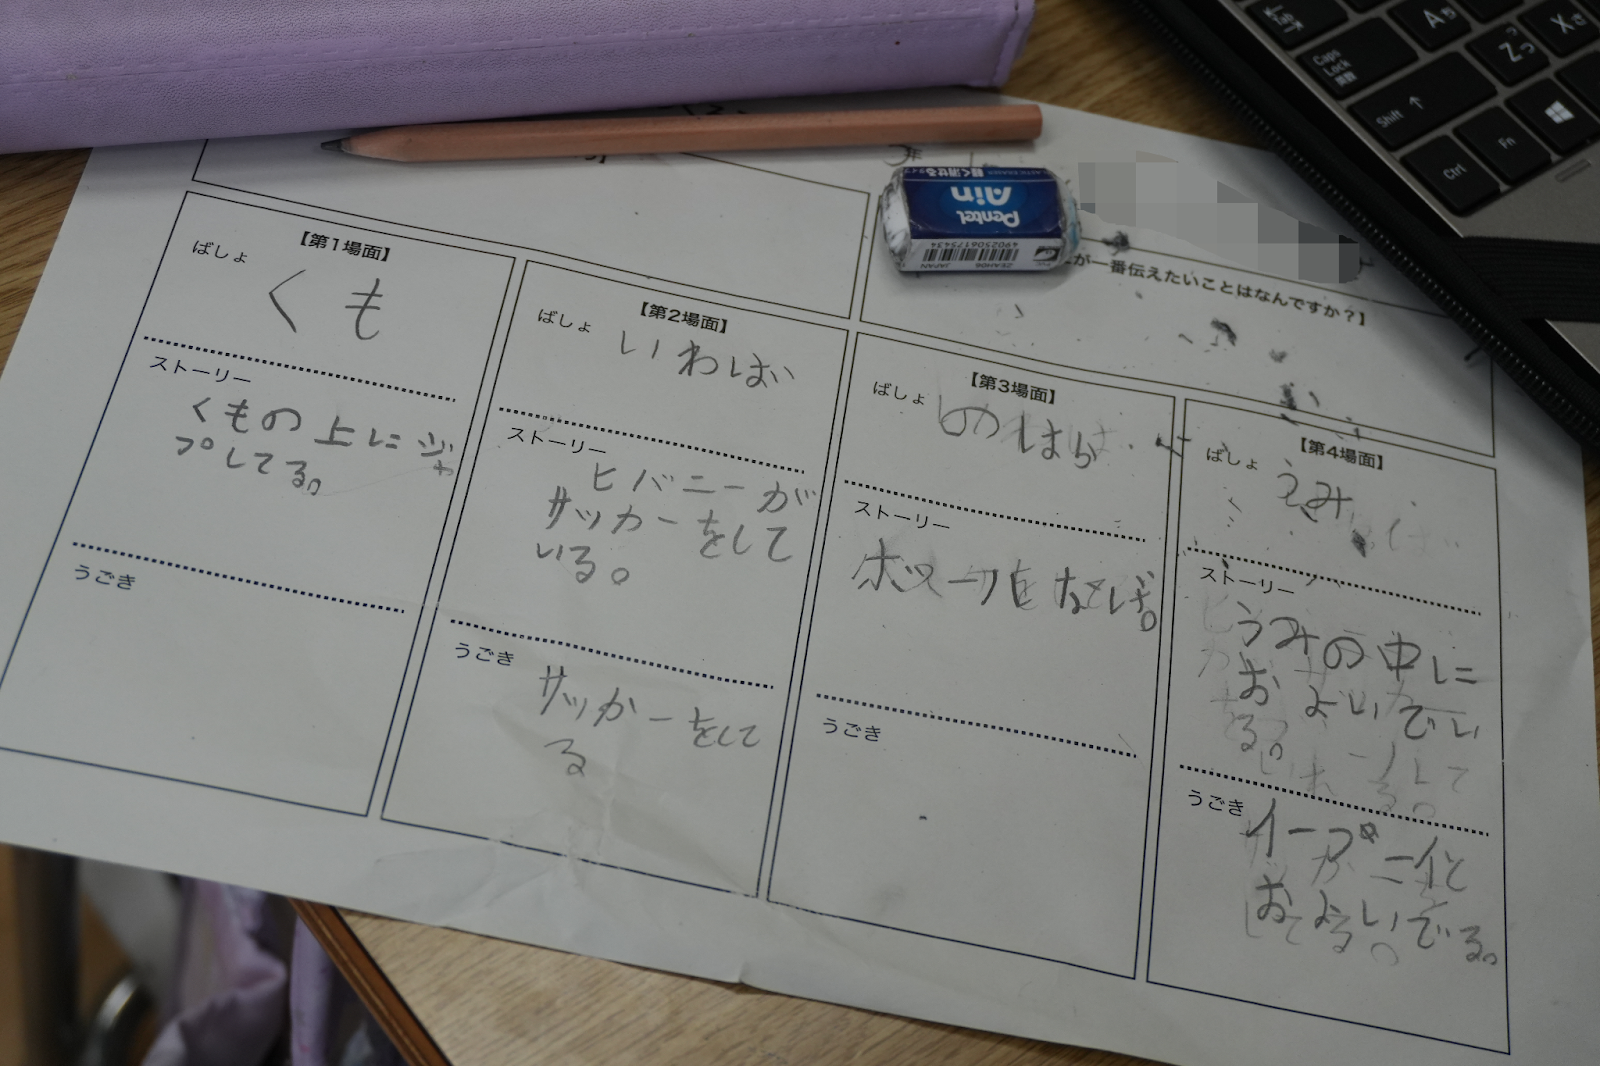 3年
が一番伝えたいことはなんですか？】
【第1場面】
ばしょ
くも
ストーリー
くもの上にジャ
プしてる。
うごき
【第2場面】
ばしょ
いわば
ストーリー
ヒバニーが
サッカーをして
いる。
うごき
サッカーをして
る
【第3場面】
ばしょ
のはら
ストーリー
うごき
【第4場面】
ばしょ
うみ
ストーリー
うみの中に
およいでい
る。
うごき
イーブニイと
およいでる。
Pentel
Ain
軽く消せるタイプ
4902506175434
ZEAH06
JAPAN
Tab
Caps
Lock
英数
Shift
Ctrl
Fn
A ち
Z つ
X さ